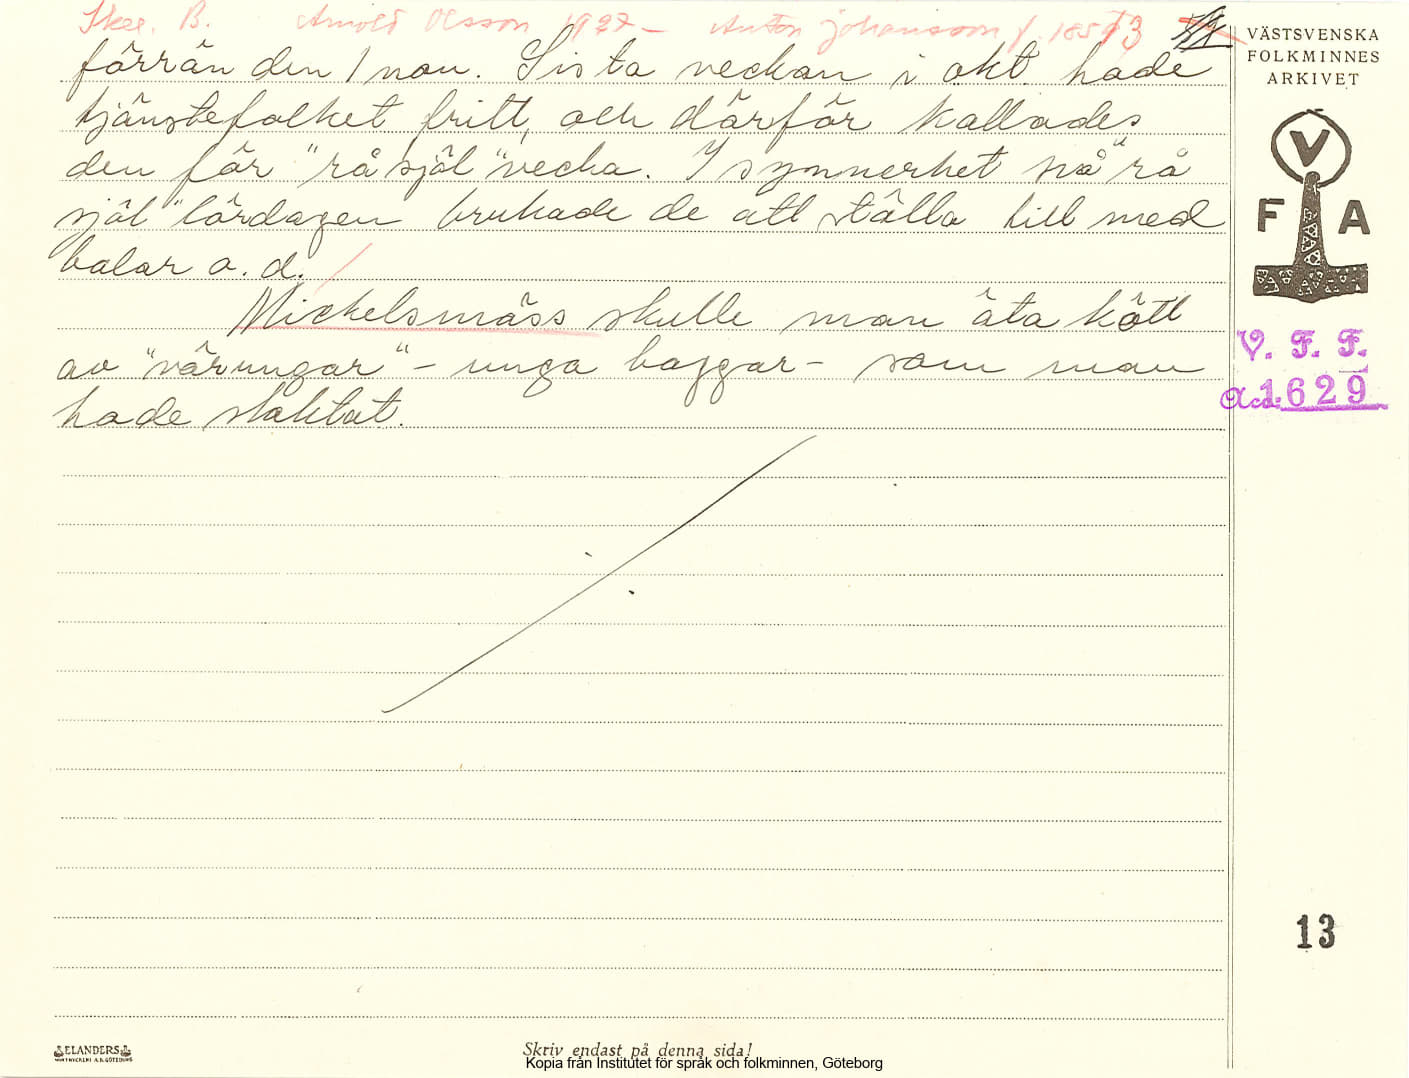 Skee. B. Arnold Olsson 1927 – Anton Johansson f. 1857 13
förrän den 1 nov. Sista veckan i okt. hade
tjänstefolket fritt, och därför kallades
den för "råsjäl"vecka. I synnerhet på "rå
själ"lördagen brukade de att ställa till med
balar o. d.
Mickelsmäss skulle man äta kött
av "värungar" – unga baggar – som man
hade slaktat.
VÄSTSVENSKA
FOLKMINNES
ARKIVET
V
F A
V. F. F.
Acc: 1629
13
ELANDERS
Skriv endast på denna sida!
Kopia från Institutet för språk och folkminnen, Göteborg